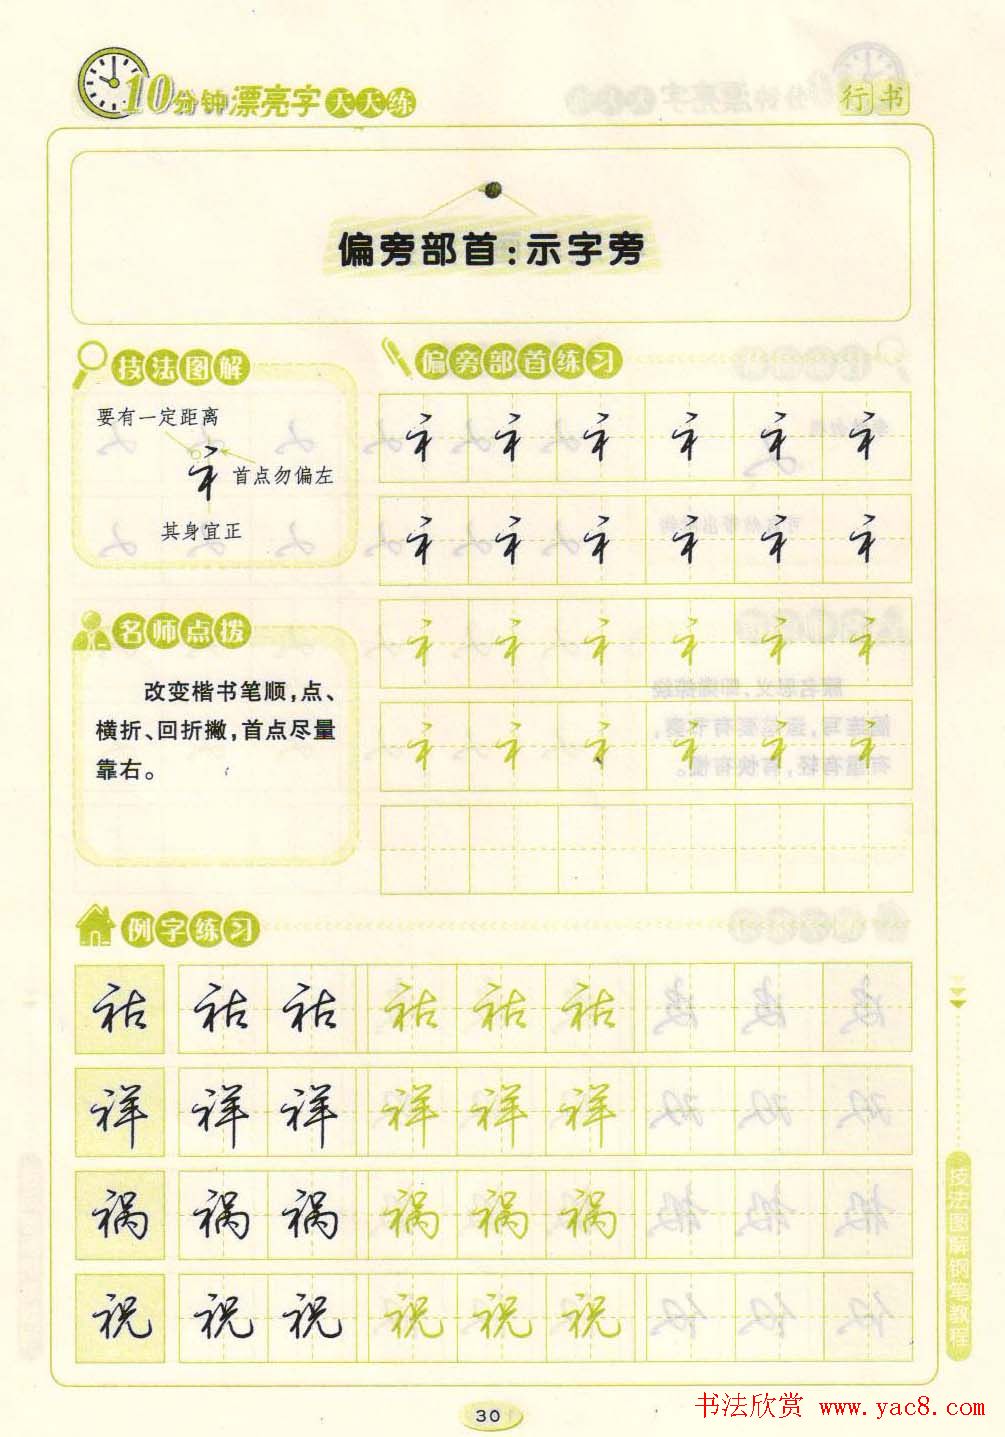 10分钟漂亮字天天练
行书
偏旁部首：示字旁
技法图解
要有一定距离
礻
首点勿偏左
其身宜正
偏旁部首练习
礻 礻 礻 礻 礻 礻
礻 礻 礻 礻 礻 礻
礻 礻 礻 礻 礻 礻
礻 礻 礻 礻 礻 礻
名师点拨
改变楷书笔顺，点、
横折、回折撇，首点尽量
靠右。
例字练习
祜 祜 祜 祜 祜 祜
祥 祥 祥 祥 祥 祥
祸 祸 祸 祸 祸 祸
祝 祝 祝 祝 祝 祝
技法图解钢笔教程
30
书法欣赏 www.yac8.com